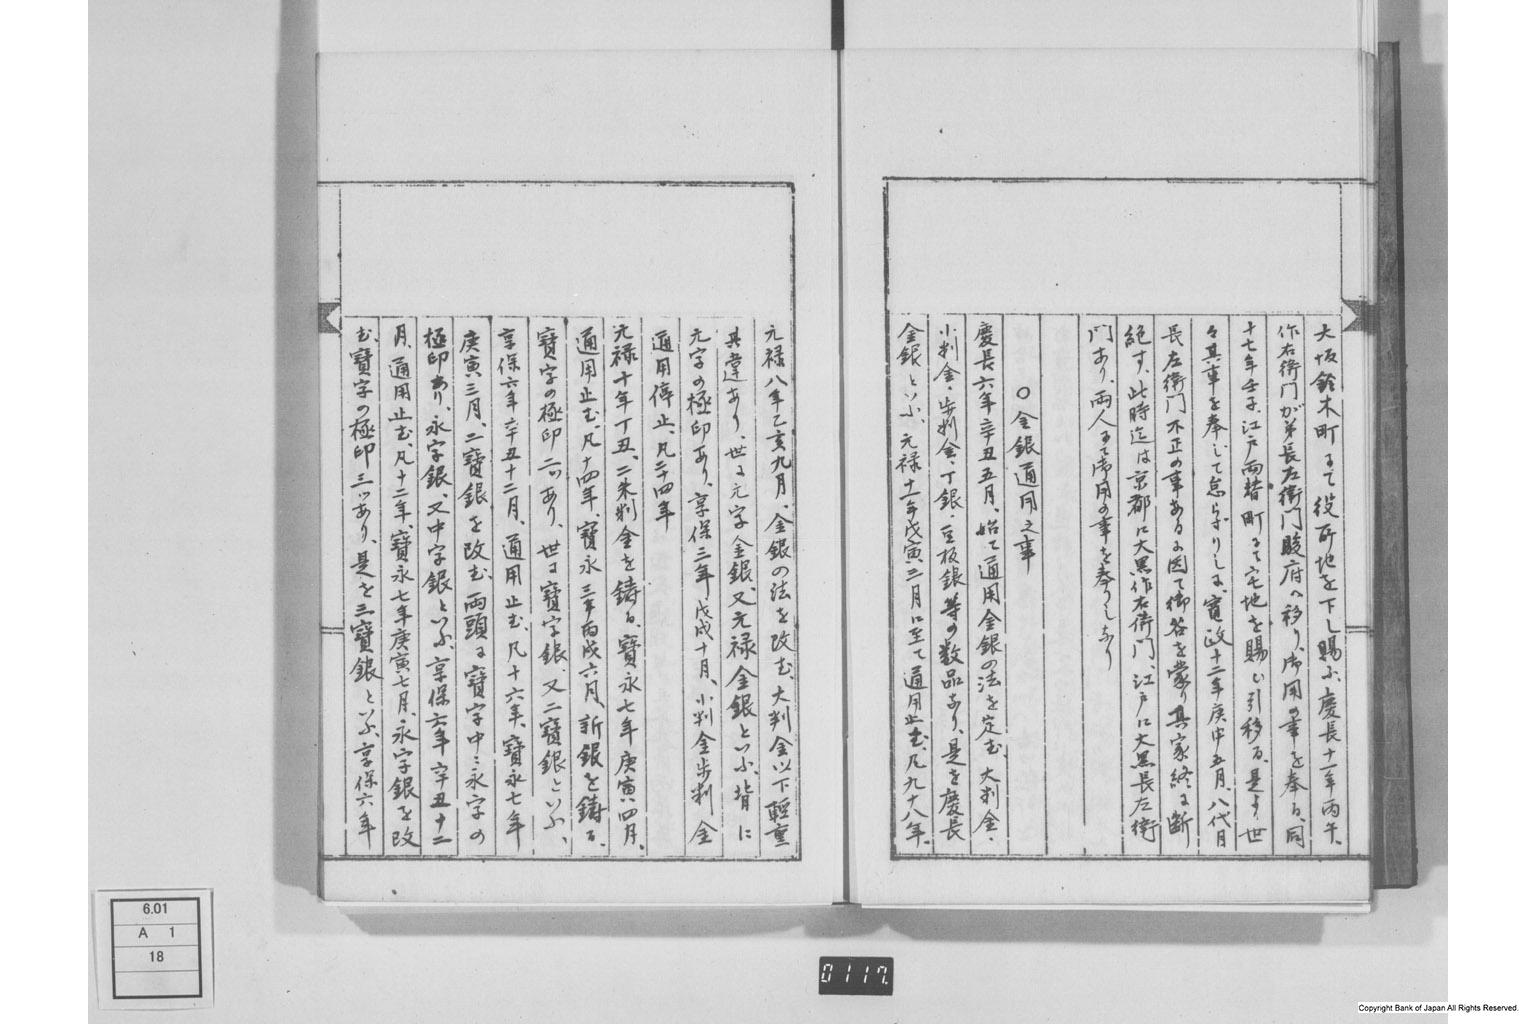 大坂鈴木町にて役所地を下し賜ふ、慶長十一年丙午、
作右衛門が弟長左衛門駿府へ移り、御用の事を奉る、同
十七年壬子、江戸両替町にて宅地を賜ひ引移る、是より世
々其事を奉じて怠らざりしに、寛政十二年庚申五月、八代目
長左衛門不正の事あるに因て御咎を蒙り其家終に断
絶す、此時迄は京都に大黒作右衛門、江戸に大黒長左衛
門あり、両人にて御用の事を奉りしなり
〇金銀通用之事
慶長六年辛丑五月、始て通用金銀の法を定む、大判金・
小判金・歩判金・丁銀・豆板銀等の数品あり、是を慶長
金銀といふ、元禄十一年戊寅二月に至て通用止む、凡九十八年、
元禄八年乙亥九月、金銀の法を改む、大判金以下軽重
其違あり、世に元字金銀、又元禄金銀といふ、背に
元字の極印あり、享保三年戊戌十月、小判金歩判金
通用停止、凡二十四年
元禄十年丁丑、二朱判金を鋳る、寶永七年庚寅四月、
通用止む、凡十四年、寶永三年丙戌六月、新銀を鋳る、
寶字の極印二つあり、世に寶字銀、又二寶銀といふ、
享保六年辛丑十二月、通用止む、凡十六年、寶永七年
庚寅三月、二寶銀を改む、両頭に寶字中ニ永字の
極印あり、永字銀、又中字銀といふ、享保六年辛丑十二
月、通用止む、凡十二年、寶永七年庚寅七月、永字銀を改
む、寶字の極印三つあり、是を三寶銀といふ、享保六年
6.01
A 1
18
0117.
Copyright Bank of Japan All Rights Reserved.